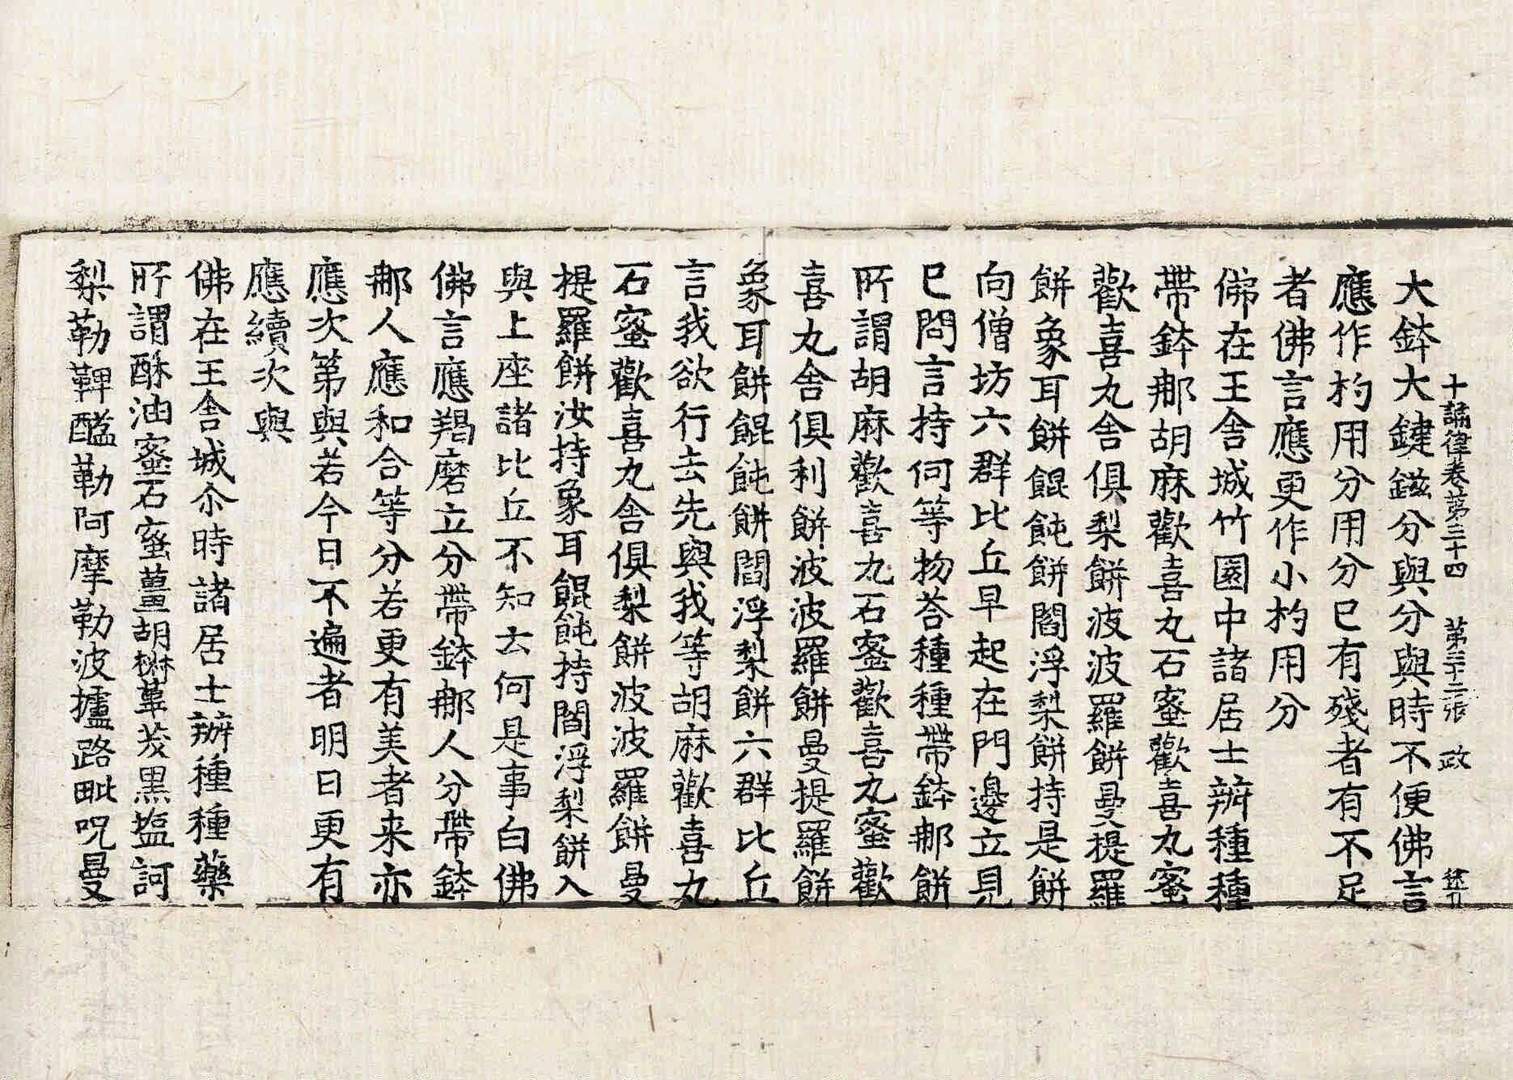 十誦律卷第三十四 第三十二張 政
大鉢大鍵鎡分與分與時不便佛言
應作杓用分用分已有殘者有不足
者佛言應更作小杓用分
佛在王舍城竹園中諸居士辨種種
帶鉢那胡麻歡喜丸石蜜歡喜丸蜜
歡喜丸舍俱梨餅波波羅餅曼提羅
餅象耳餅餛飩餅閻浮梨餅持是餅
向僧坊六群比丘早起在門邊立見
已問言持何等物荅種種帶鉢那餅
所謂胡麻歡喜丸石蜜歡喜丸蜜歡
喜丸舍俱利餅波波羅餅曼提羅餅
象耳餅餛飩餅閻浮梨餅六群比丘
言我欲行去先與我等胡麻歡喜丸
石蜜歡喜丸舍俱梨餅波波羅餅曼
提羅餅汝持象耳餛飩持閻浮梨餅入
與上座諸比丘不知云何是事白佛
佛言應羯磨立分帶鉢那人分帶鉢
那人應和合等分若更有美者来亦
應次第與若今日不遍者明日更有
應續次與
佛在王舍城尒時諸居士辦種種藥
所謂酥油蜜石蜜薑胡椒蓽茇黑塩訶
梨勒鞞醯勒阿摩勒波攎路毗呪曼